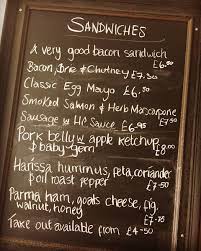 SANDWICHES
A very good bacon sandwich
£6.50
Bacon, Brie & Chutney £7.50
Classic Egg Mayo £6.50
Smoked Salmon & Herb Marscarpone
£7.50
Sausage w/ HP Sauce £6.95
Pork belly w apple ketchup
& baby gem £8.00
Harissa hummus, peta, coriander
& oil roast pepper £7.50
Parma ham, goats cheese, fig,
walnut, honey £7.75
Take out available from £4.50